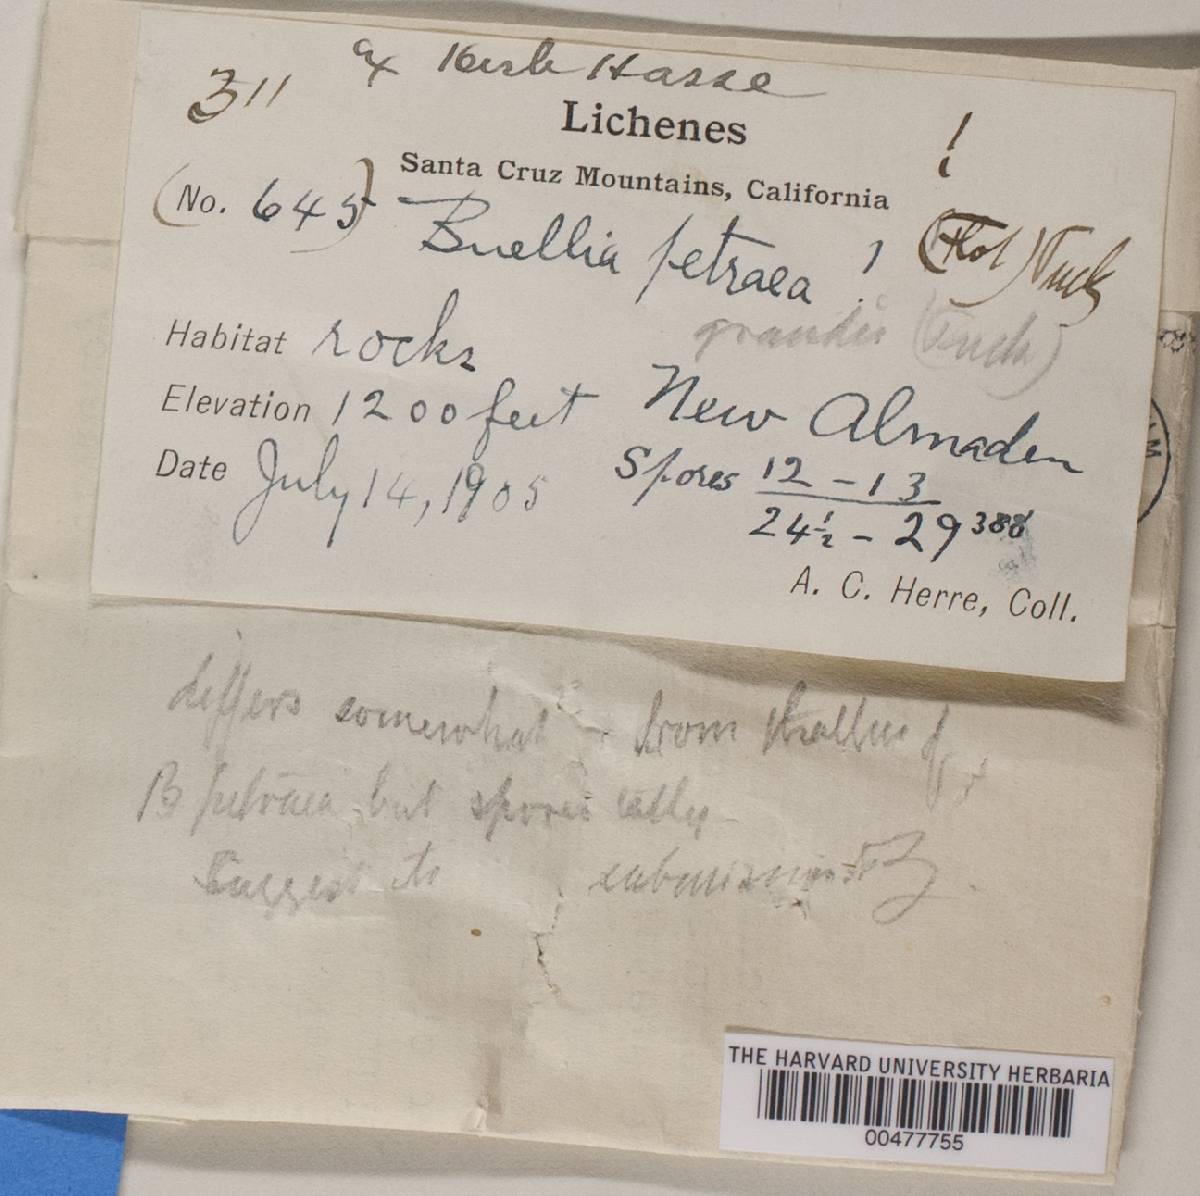 ex Herb Hasse
311
Lichenes
!
Santa Cruz Mountains, California
(No. 645) Buellia petraea, (Flot) Tuck
grandis (Tuck)
Habitat rocks
Elevation 1200 feet New Almaden
Date July 14, 1905 Spores 12 - 13
24½ - 29 388
A. C. Herre, Coll.
differs somewhat from thallus of
B petraea, but spores
Suggest
THE HARVARD UNIVERSITY HERBARIA
00477755